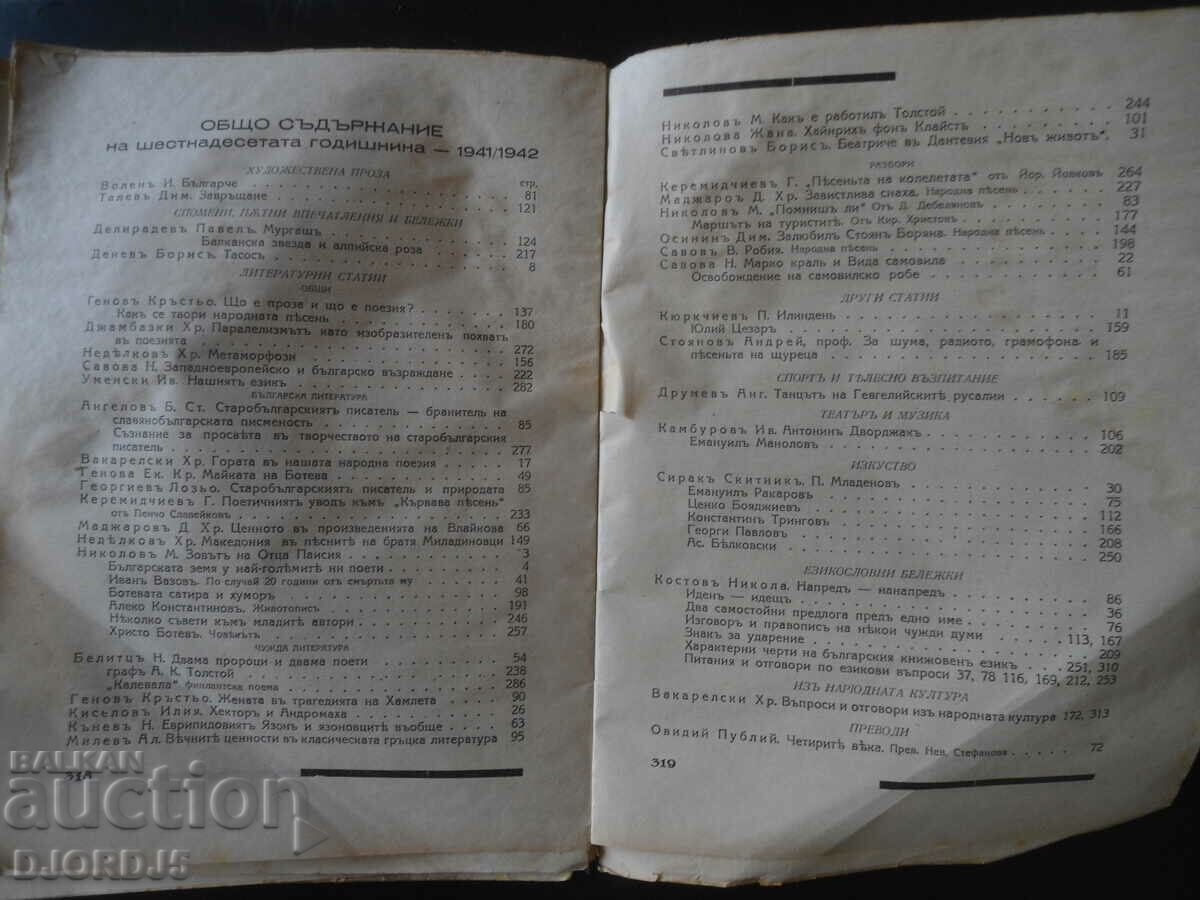 ОБЩО СЪДЪРЖАНИЕ
на шестнадесетата годишнина — 1941/1942
ХУДОЖЕСТВЕНА ПРОЗА
стр.
Воленъ И. Българче . . . 81
Талевъ Дим. Завръщане . . . 121
СПОМЕНИ, ПѪТНИ ВПЕЧАТЛЕНИЯ И БЕЛЕЖКИ
Делирадевъ Павелъ. Мургашъ . . . 124
Балканска звезда и алпийска роза . . . 217
Деневъ Борисъ. Тасосъ . . . 8
ЛИТЕРАТУРНИ СТАТИИ
ОБЩИ
Геновъ Кръстьо. Що е проза и що е поезия? . . . 137
Какъ се твори народната пѣсень . . . 180
Джамбазки Хр. Паралелизмътъ като изобразителенъ похватъ
въ поезията . . . 272
Недѣлковъ Хр. Метаморфози . . . 156
Савова Н. Западноевропейско и българско възраждане . . . 222
Уменски Ив. Нашиятъ езикъ . . . 282
БЪЛГАРСКА ЛИТЕРАТУРА
Ангеловъ Б. Ст. Старобългарскиятъ писатель — бранитель на
славянобългарската писменость . . . 85
Съзнание за просвѣта въ творчеството на старобългарския
писатель . . . 277
Вакарелски Хр. Гората въ нашата народна поезия . . . 17
Генова Ек. Кр. Майката на Ботева . . . 49
Георгиев Лозьо. Старобългарскиятъ писател и природата 85
Керемидчиевъ Г. Поетичниятъ уводъ къмъ „Кървава пѣсень"
отъ Пенчо Славейковъ . . . 233
Маджаровъ Д. Хр. Ценното въ произведенията на Влайкова 66
Недѣлковъ Хр. Македония въ пѣснитѣ на братя Миладиновци 149
Николовъ М. Зовътъ на Отца Паисия . . . 3
Българската земя у най-големитѣ ни поети . . . 7
Иванъ Вазовъ. По случай 20 години отъ смъртьта му . . . 41
Ботевата сатира и хуморъ . . . 98
Алеко Константиновъ. Животописъ . . . 191
Нѣколко съвети къмъ младитѣ автори . . . 246
Христо Ботевъ. Човѣкътъ . . . 257
ЧУЖДА ЛИТЕРАТУРА
Белитцъ Н. Двама пророци и двама поети . . . 54
графъ А. К. Толстой . . . 238
„Калевала" финландска поема . . . 286
Геновъ Кръстьо. Жената въ трагедията на Хамлета . . . 90
Киселовъ Илия. Хекторъ и Андромаха . . . 26
Къневъ Н. Еврипидовиятъ Язонъ и язоновцитѣ въобще . . . 63
Милевъ Ал. Вѣчнитѣ ценности въ класическата гръцка литература 95
318
Николовъ М. Какъ е работилъ Толстой . . . 244
Николова Жана. Хайнрихъ фонъ Клайстъ . . . 101
Свѣтлиновъ Борисъ. Беатриче въ Дантевия „Новъ животъ", 31
РАЗБОРИ
Керемидчиевъ Г. „Пѣсеньта на колелетата" отъ Йор. Йовковъ 264
Маджаровъ Д. Хр. Завистлива снаха. Народна пѣсень . . . 227
Николовъ М. „Помнишъ ли" Отъ Д. Дебеляновъ . . . 83
Маршътъ на туриститѣ. Отъ Кир. Христовъ . . . 177
Осининъ Дим. Залюбилъ Стоянъ Боряна. Народна пѣсень . . . 144
Савовъ В. Робия. Народна пѣсень . . . 198
Савова Н. Марко краль и Вида самовила . . . 22
Освобождение на самовилско робе . . . 61
ДРУГИ СТАТИИ
Кюркчиевъ П. Илиндень . . . 11
Юлий Цезаръ . . . 159
Стояновъ Андрей, проф. За шума, радиото, грамофона и
пѣсеньта на щуреца . . . 185
СПОРТЪ И ТѢЛЕСНО ВЪЗПИТАНИЕ
Друмевъ Анг. Танцътъ на Гевгелийскитѣ русалии . . . 109
ТЕАТЪРЪ И МУЗИКА
Камбуровъ Ив. Антонинъ Дворджакъ . . . 106
Емануилъ Маноловъ . . . 202
ИЗКУСТВО
Сиракъ Скитникъ. П. Младеновъ . . . 30
Емануилъ Ракаровъ . . . 75
Ценко Бояджиевъ . . . 112
Константинъ Тринговъ . . . 166
Георги Павловъ . . . 208
Ас. Бѣлковски . . . 250
ЕЗИКОСЛОВНИ БЕЛЕЖКИ
Костовъ Никола. Напредъ — нанапредъ . . . 86
Иденъ — идещъ . . . 36
Два самостойни предлога предъ едно име . . . 76
Изговоръ и правописъ на нѣкои чужди думи . . . 113, 167
Знакъ за ударение . . . 209
Характерни черти на българския книжовенъ езикъ . . . 251, 310
Питания и отговори по езикови въпроси 37, 78 116, 169, 212, 253
ИЗЪ НАРОДНАТА КУЛТУРА
Вакарелски Хр. Въпроси и отговори изъ народната култура 172, 313
ПРЕВОДИ
Овидий Публий. Четиритѣ вѣка. Прев. Нев. Стефанова . . . 72
319
BALKAN
auction
DJORDJ5